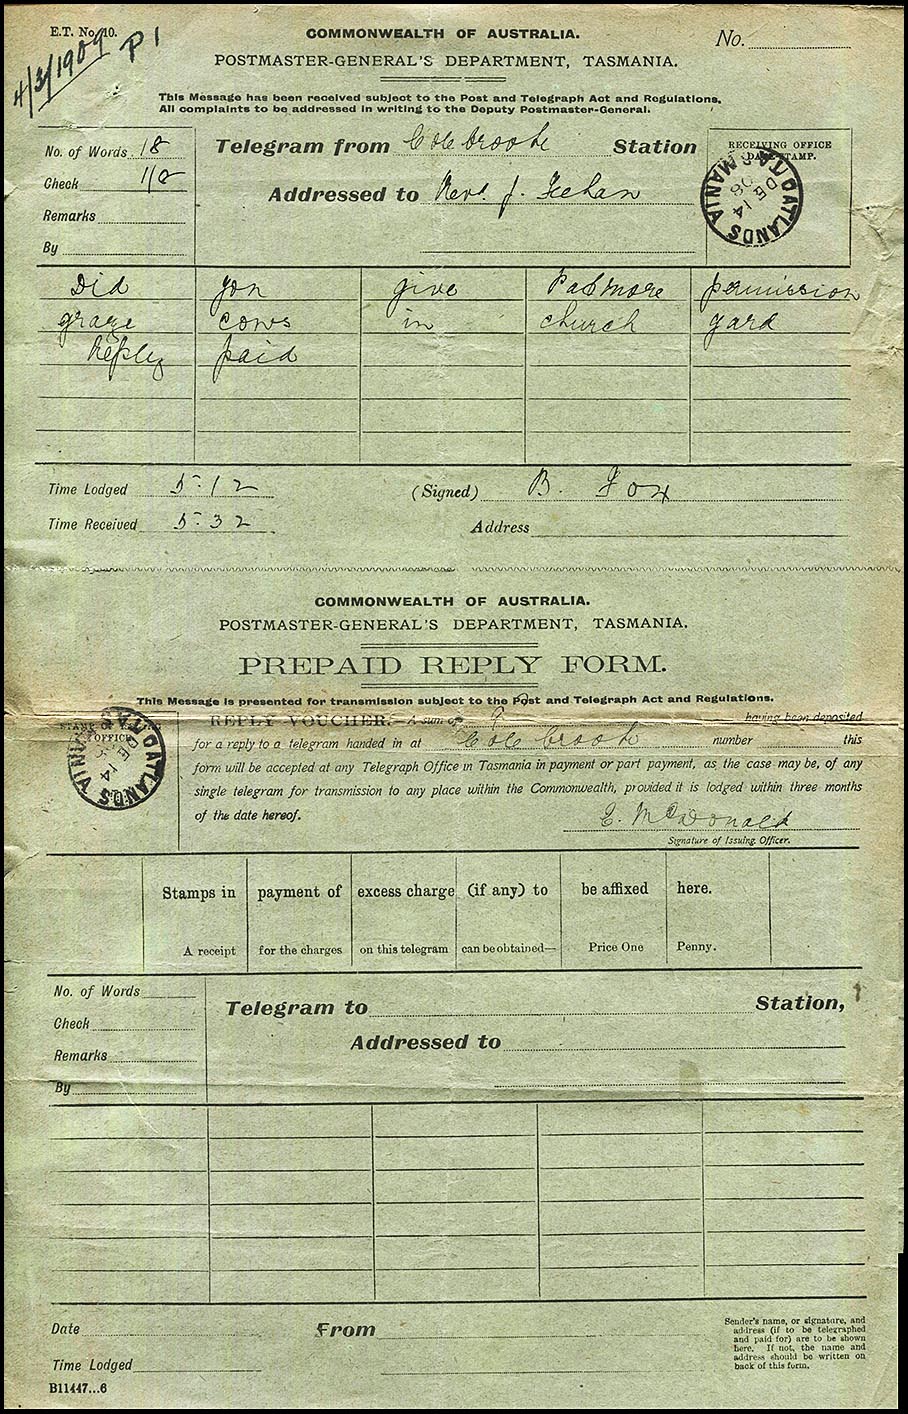 E.T. No. 10.
4/3/1909 P 1
COMMONWEALTH OF AUSTRALIA.
No.
POSTMASTER-GENERAL'S DEPARTMENT, TASMANIA.
This Message has been received subject to the Post and Telegraph Act and Regulations.
All complaints to be addressed in writing to the Deputy Postmaster-General.
No. of Words 18
Check 1/8
Remarks
By
Telegram from Colebrook Station
Addressed to Revd. J. Feehan
RECEIVING OFFICE
DATE STAMP.
OATLANDS TASMANIA
DE 14
08
Did you give Padmore permission
graze cows in church yard
Reply paid
Time Lodged 5.12
(Signed) B. Fox
Time Received 5.32
Address
COMMONWEALTH OF AUSTRALIA.
POSTMASTER-GENERAL'S DEPARTMENT, TASMANIA.
PREPAID REPLY FORM.
This Message is presented for transmission subject to the Post and Telegraph Act and Regulations.
STAMP OF
OFFICE
OATLANDS TASMANIA
DE 14
REPLY VOUCHER.—A sum of 9 having been deposited
for a reply to a telegram handed in at Colebrook number this
form will be accepted at any Telegraph Office in Tasmania in payment or part payment, as the case may be, of any
single telegram for transmission to any place within the Commonwealth, provided it is lodged within three months
of the date hereof.
E. McDonald
Signature of Issuing Officer.
Stamps in payment of excess charge (if any) to be affixed here.
A receipt for the charges on this telegram can be obtained— Price One Penny.
No. of Words
Check
Remarks
By
Telegram to Station,
Addressed to
Date
From
Time Lodged
Sender's name, or signature, and
address (if to be telegraphed
and paid for) are to be shown
here. If not, the name and
address should be written on
back of this form.
B11447...6